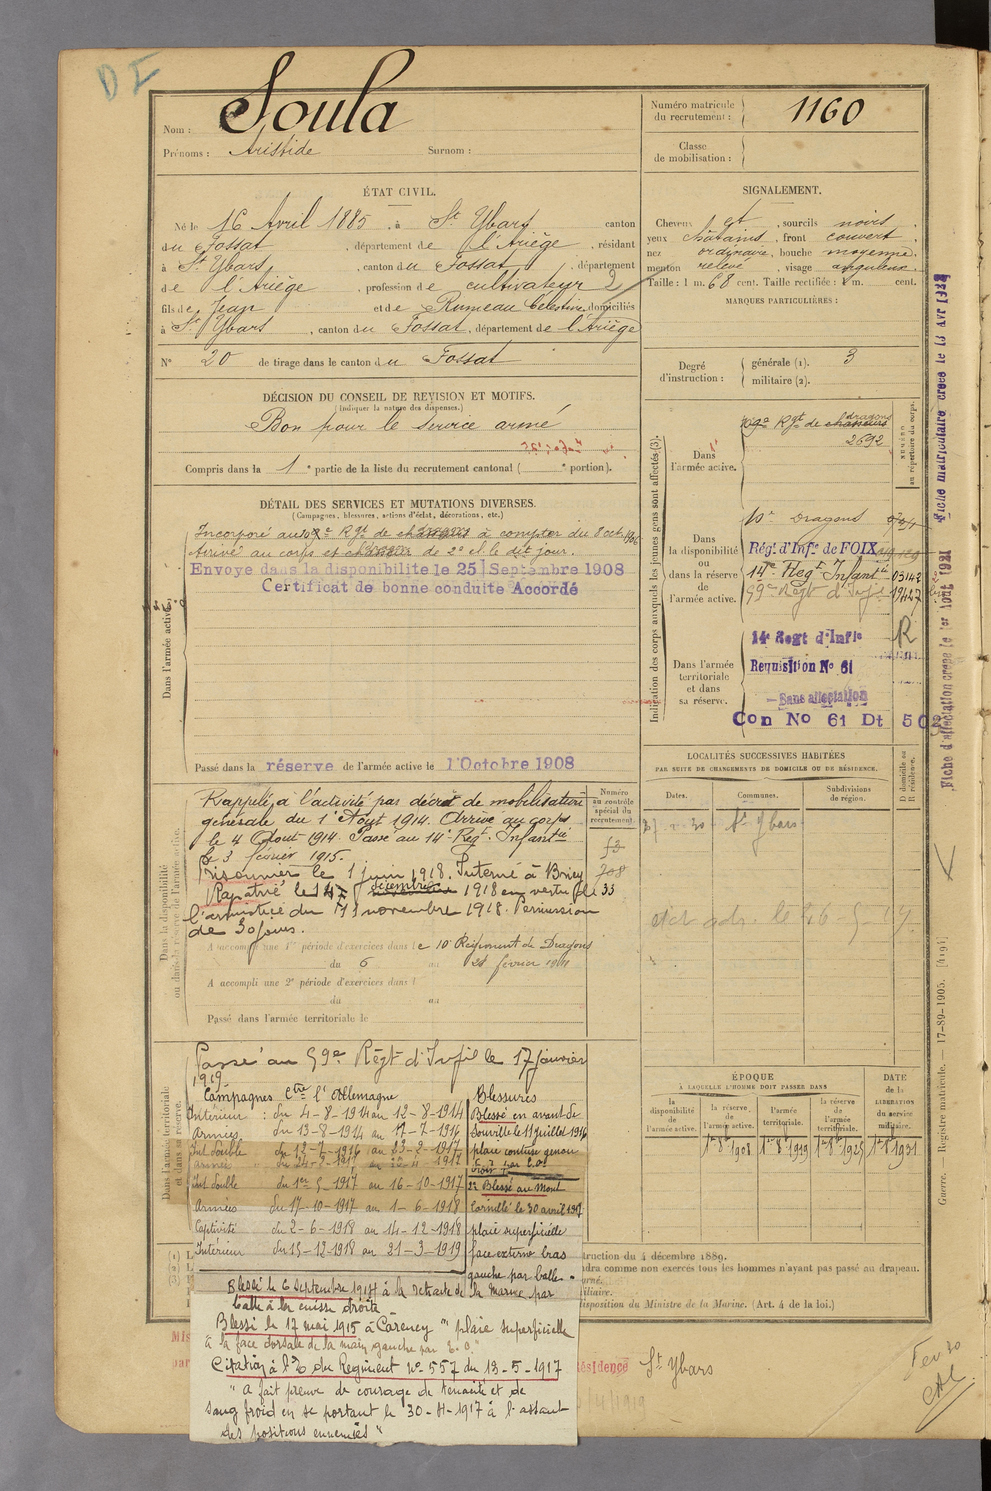 DI
Nom : Soula
Prénoms : Aristide Surnom :
Numéro matricule du recrutement : 1160
Classe de mobilisation :
ÉTAT CIVIL.
Né le 16 Avril 1885, à St Ybars canton
du Fossat, département de l'Ariège, résidant
à St Ybars, canton du Fossat, département
de l'Ariège, profession de cultivateur
fils de Jean et de Rumeau Célestine domiciliés
à St Ybars, canton du Fossat, département de l'Ariège
N° 20 de tirage dans le canton du Fossat
SIGNALEMENT.
Cheveux et, sourcils noirs
yeux châtains, front couvert
nez ordinaire, bouche moyenne
menton relevé, visage anguleux
Taille : 1 m. 68 cent. Taille rectifiée : 1 m. cent.
MARQUES PARTICULIÈRES :
Degré d'instruction : générale (1). 3
militaire (2).
DÉCISION DU CONSEIL DE REVISION ET MOTIFS.
(Indiquer la nature des dispenses.)
Bon pour le Service armé
Compris dans la 1e partie de la liste du recrutement cantonal ( e portion).
DÉTAIL DES SERVICES ET MUTATIONS DIVERSES.
(Campagnes, blessures, actions d'éclat, décorations, etc.)
Incorporé au Rgt de à compter du 8 oct. 1906
Arrivé au corps et de 2e cl. le dit jour.
Envoye dans la disponibilite le 25 Septembre 1908
Certificat de bonne conduite Accordé
Dans l'armée active.
Passé dans la réserve de l'armée active le 1 Octobre 1908
Indication des corps auxquels les jeunes gens sont affectés (3).
NUMÉRO au répertoire du corps.
Dans l'armée active.
Rgt de chasseurs dragons
2692
Dans la disponibilité ou dans la réserve de l'armée active.
10e Dragons
Régt d'Infie de FOIX
14e Regt Infantie 03142
59e Régt d'Infie 19427
Dans l'armée territoriale et dans sa réserve.
14e Regt d'Infie R
Requisition No 61
Sans affectation
Con No 61 Dt 502
Fiche matriculaire créée le 13 Avr 1928
Fiche d'affectation créée le 1er Août 1921
LOCALITÉS SUCCESSIVES HABITÉES
PAR SUITE DE CHANGEMENTS DE DOMICILE OU DE RÉSIDENCE.
Dates. Communes. Subdivisions de région. D domicile ou R résidence.
St Ybars
Dans la disponibilité ou dans la réserve de l'armée active.
Numéro au contrôle spécial du recrutement.
Rappelé à l'activité par décret de mobilisation
générale du 1er Août 1914. Arrivé au corps
le 4 Aout 1914. Passé au 14e Regt. Infantie
le 3 février 1915.
Prisonnier le 1 juin 1918. Interné à Briey 708
Rapatrié le 14 décembre 1918 en vertu de 33
l'armistice du 11 novembre 1918. Permission
de 30 jours.
A accompli une 1re période d'exercices dans le 10e Régiment de Dragons
du 6 au 28 février 1911
A accompli une 2e période d'exercices dans l
du au
Passé dans l'armée territoriale le
Dans l'armée territoriale et dans sa réserve.
Passé au 59e Régt d'Infie le 17 janvier
1919
Campagnes Ctre l'Allemagne
Intérieur : du 4-8-1914 au 12-8-1914
Armées du 13-8-1914 au 11-7-1916
Int. double du 12-7-1916 au 23-2-1917
Armées du 24-2-1917 au 1917
Int. double du 1er 5-1917 au 16-10-1917
Armées du 17-10-1917 au 1-6-1918
Captivité du 2-6-1918 au 14-12-1918
Intérieur du 15-12-1918 au 21-3-1919
Blessures
Blessé en avant de
Souville le 11 juillet 1916
plaie contuse genou
droit par E.O.
2e Blessé au Mont
Cornillet le 30 avril 1917
plaie superficielle
face externe bras
gauche par balle.
Blessé le 6 septembre 1914 à la retraite de la Marne par
balle à la cuisse droite
Blessé le 17 mai 1915 à Carency "plaie superficielle
à la face dorsale de la main gauche par E.O."
Citation à l'O du Régiment n° 557 du 13-5-1917
"A fait preuve de courage de tenacité et de
sang froid en se portant le 30-4-1917 à l'assaut
des positions ennemies"
ÉPOQUE
À LAQUELLE L'HOMME DOIT PASSER DANS
la disponibilité de l'armée active.
la réserve de l'armée active. 1er 8bre 1908
l'armée territoriale. 1er 8bre 1919
la réserve de l'armée territoriale. 1er 8bre 1925
DATE de la LIBÉRATION du service militaire. 1er 8bre 1931
truction du 4 décembre 1889.
ndra comme non exercés tous les hommes n'ayant pas passé au drapeau.
isposition du Ministre de la Marine. (Art. 4 de la loi.)
Guerre. — Registre matricule. — 17-89-1905. [4494]
ésidence St Ybars
Fev 30